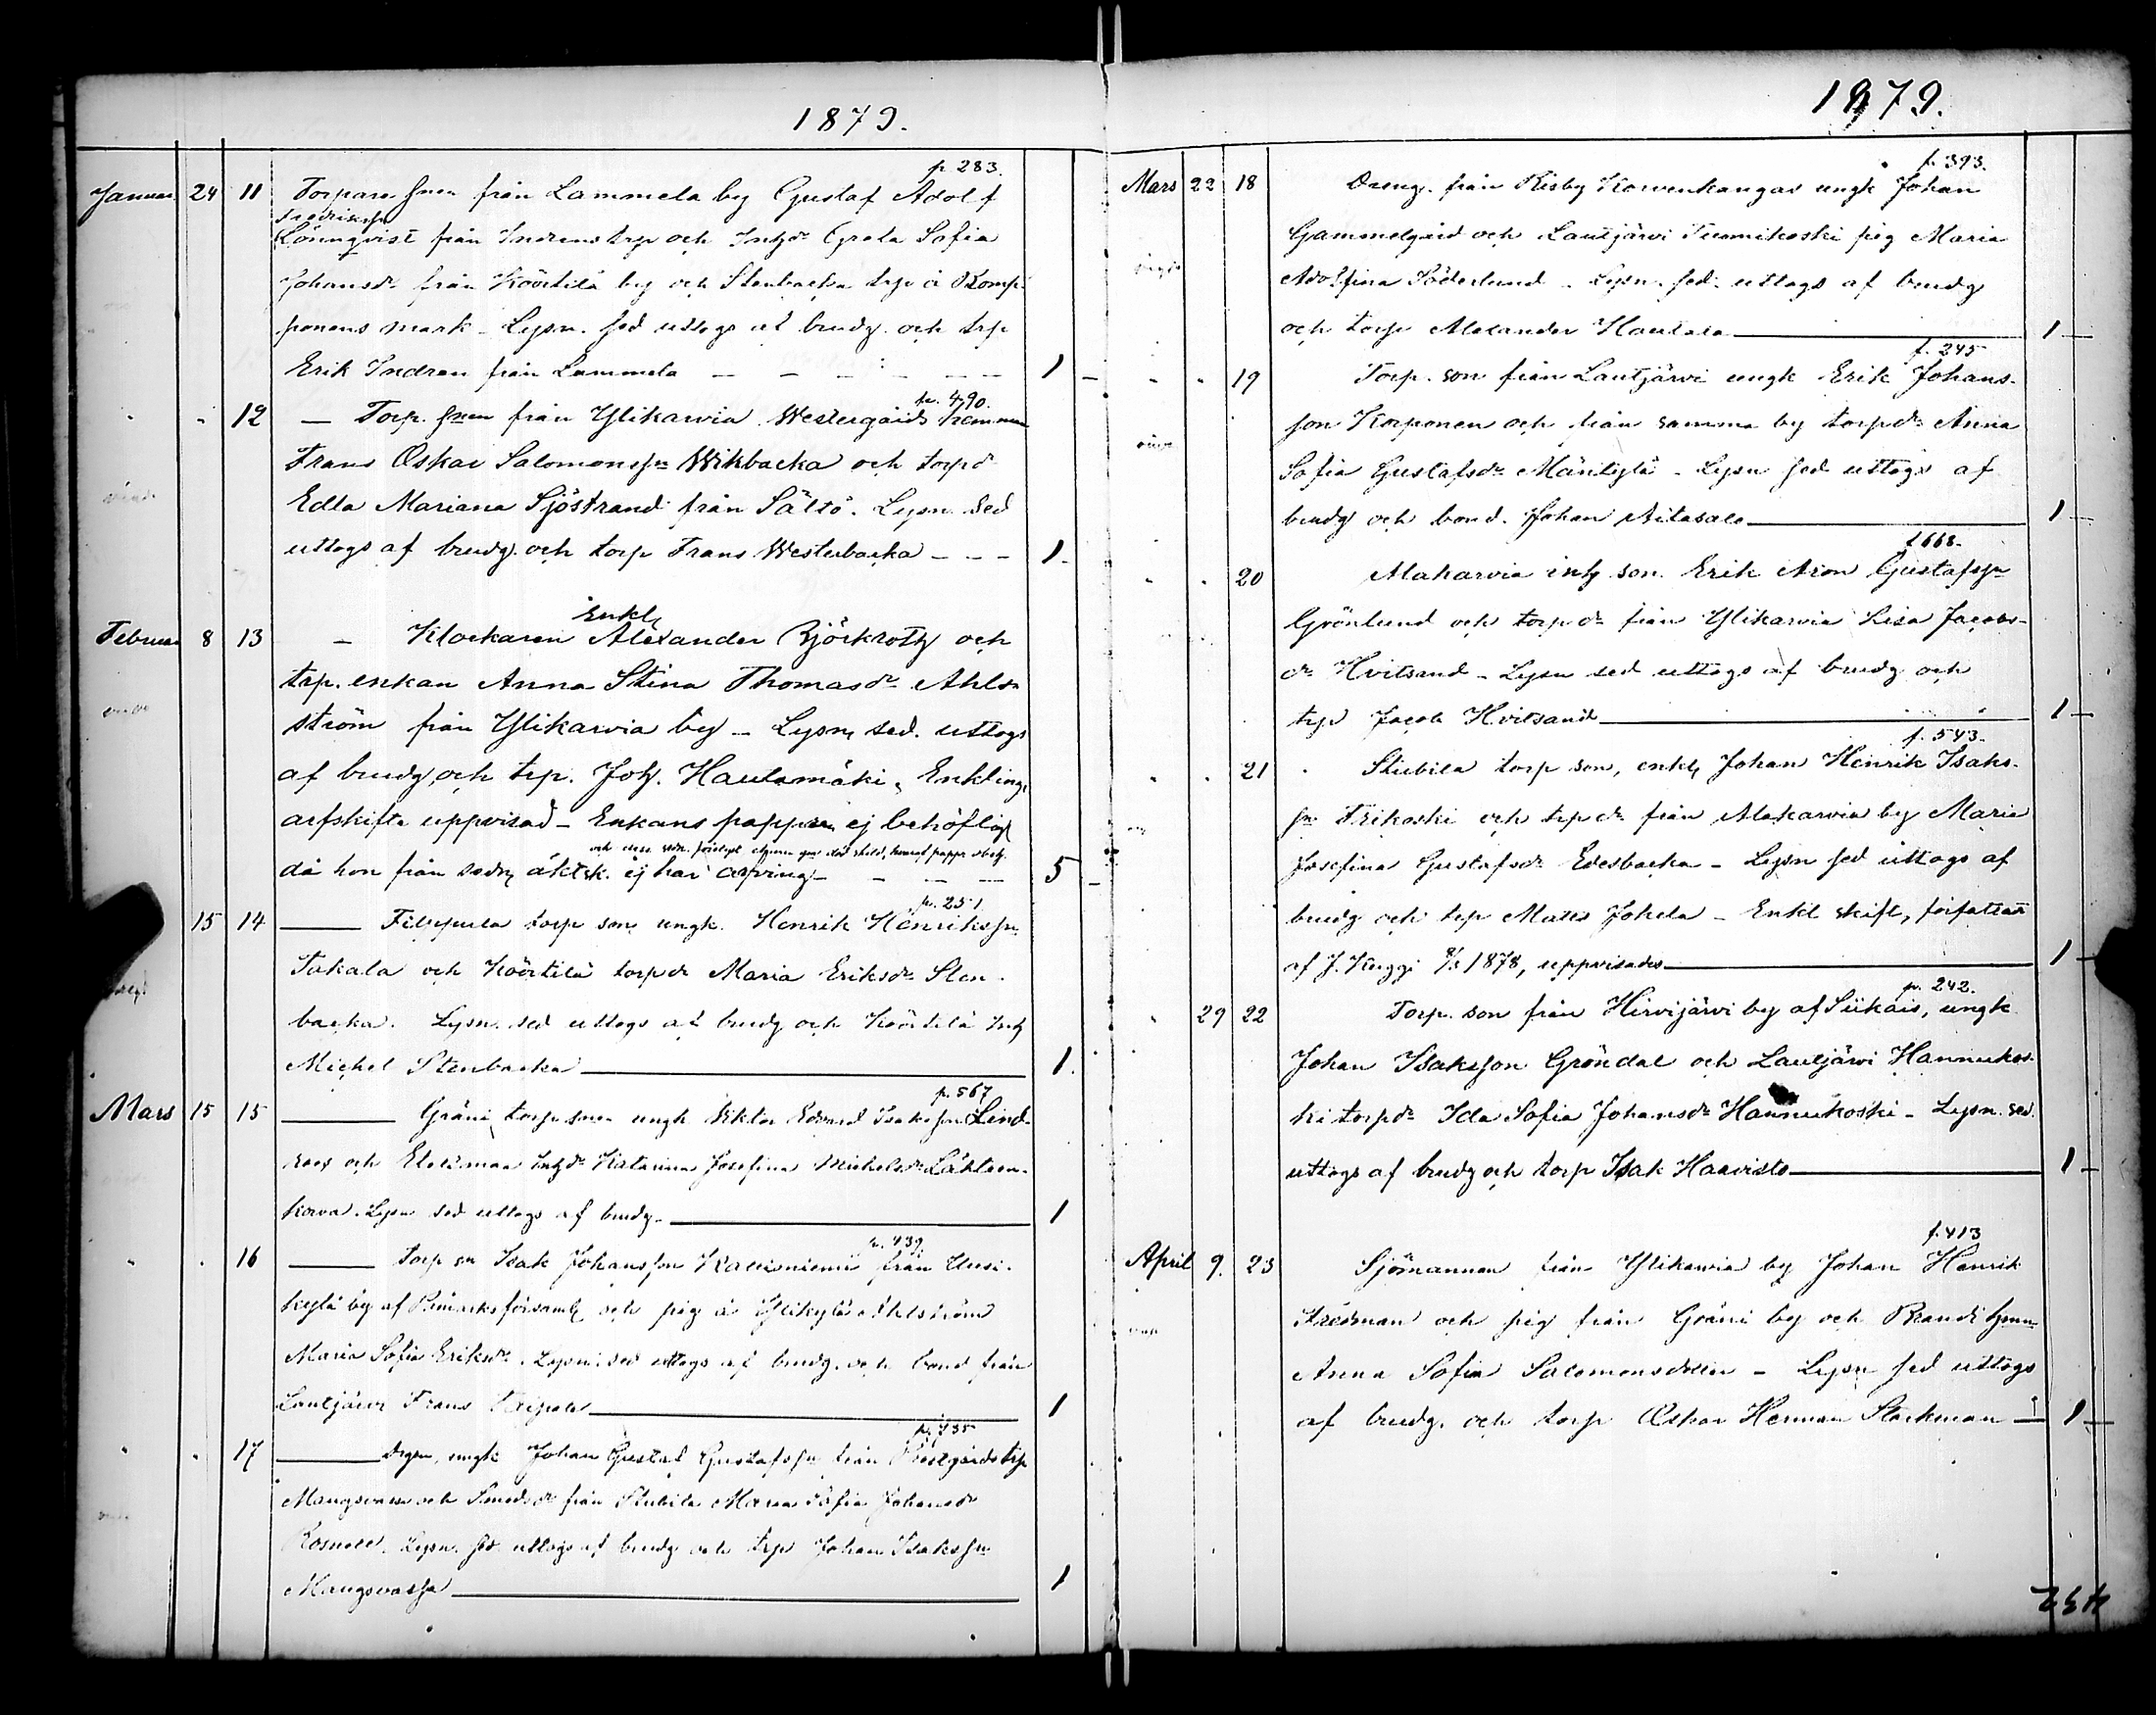 1879.
p 283.
Januar. 24 11 Torpare sonen från Lammela by Gustaf Adolf
Fredrikssn
Lönnqvist från Indrens trp och Inhds Greta Sofia
Johansdr från Köörtilä by och Stenbacka trp å Komp
ponens mark - Lysn. sed uttogs af brudg. och trp
Erik Indren från Lammela 1
p. 490.
12 Torp. sonen från Ylikarvia Westergårds hemman
Frans Oskar Salomonssn Wikbacka och torp dr
Edla Mariana Sjöstrand från Sältö. Lysn. sed
uttogs af brudg. och torp Frans Westerbacka 1
Enkl
Februar 8 13 Klockaren Alexander Björkroth och
trp. enkan Anna Stina Thomasdr Ahl-
ström från Ylikarvia by - Lysn. sed. uttogs
af brudg. och trp. Joh. Hautamäki. Enkling.
arfskifte uppvisad - Enkans papper ej behöflig
då hon från sedn. äktsk. ej har arfving 5
p. 251
15 14 torp son ungk. Henrik Henrikssn
Takala och Köörtilä torp dr Maria Eriksdr Sten-
backa. Lysn. sed uttogs af brudg och Köörtilä Inh
Michel Stenbacka 1.
p. 567
Mars 15 15 Gräni torp son ungk Viktor Edvard Isakssn Lind-
roos och Inhdr Katarina Josefina Michelsdr Läkteen-
korva. Lysn sed uttogs af brudg. 1
p. 439
16 Torp sn Isak Johanssn Kauisniemi från Uusi-
kylä by af församl och pig å Ylikylä Ahlström
Maria Sofia Eriksdr. Lysn. sed uttogs af brudg. och bond från
Lautjärvi Frans 1
p. 435
17 ungk Johan Gustaf Gustafssn från trp
och dr från Stubila Maria Sofia Johansdr
Lysn. sed uttogs af brudg och trp Johan Isakssn
1
1879.
p. 393.
Mars 22 18 Dreng. från Risby Korvenkangas ungk Johan
Gammelgård och Lautjärvi Tuomikoski pig Maria
Adolfina Söderlund. Lysn. sed. uttogs af brudg
och torp Alexander Hautala 1
p. 245
19 Torp. son från Lautjärvi ungk Erik Johans-
son Korponen och från samma by torpdr Anna
Sofia Gustafsdr Mäntylä - Lysn sed uttogs af
brudg och bond. Johan Aitasalo 1
p 668.
20 Alakarvia inh son. Erik Aron Gustafssn
Grönlund och torp dr från Ylikarvia Lisa Jacobs-
dr Hvitsand - Lysn sed uttogs af brudg och
trp Jacob Hvitsand 1
p. 543.
21 Stubila torp son, enkl Johan Henrik Isaks-
sn och trp dr från Alakarvia by Maria
Josefina Gustafsdr Edesbacka - Lysn sed uttogs af
brudg och trp Matts Jokela - Enkl skift, författadt
af J. Kuggi 1878, uppvisades 1
p. 242.
29 22 Torp. son från Hirvijärvi by af Siikais, ungk
Johan Isaksson Gröndal och Lautjärvi Hannukos-
ki torpdr Ida Sofia Johansdr Hannukoski - Lysn. sed.
uttogs af brudg och torp Isak Haavisto 1
p. 413
April 9. 23 Sjömannen från Ylikarvia by Johan Henrik
och pig från Gräni by och Brandt hmn
Anna Sofia Salomonsdotter - Lysn sed uttogs
af brudg. och torp Oskar Herman Stackman 1